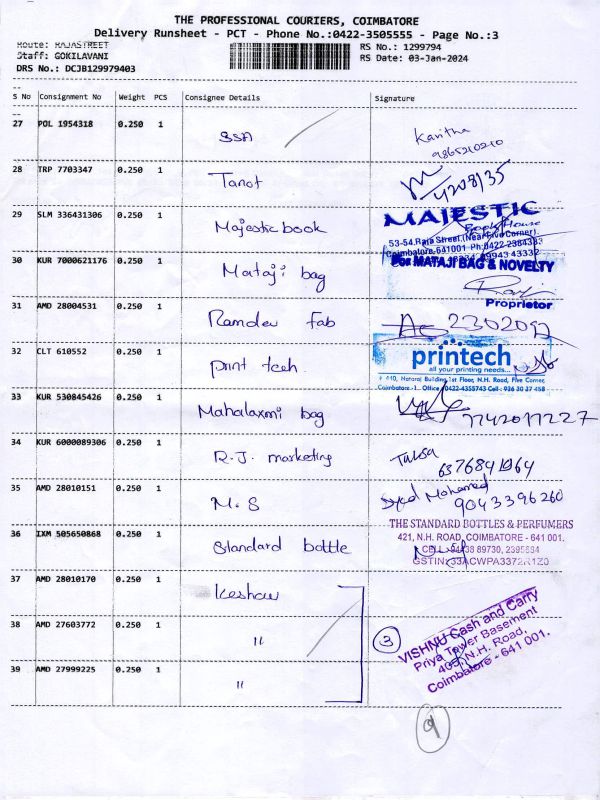 THE PROFESSIONAL COURIERS, COIMBATORE
Delivery Runsheet - PCT - Phone No.:0422-3505555 - Page No.:3
Route: RAJASTREET
RS No.: 1299794
Staff: GOKILAVANI
RS Date: 03-Jan-2024
DRS No.: DCJB129979403
S No Consignment No Weight PCS Consignee Details Signature
27 POL 1954318 0.250 1 SSA Kavitha
9865210210
28 TRP 7703347 0.250 1 Tanot 4208135
29 SLM 336431306 0.250 1 Majestic book MAJESTIC
Book House
53-54, Raja Street, (Near Five Corner),
Coimbatore-641001 Ph:0422 2384333
99943 43332
30 KUR 7000621176 0.250 1 Mataji bag For MATAJI BAG & NOVELTY
Proprietor
31 AMD 28004531 0.250 1 Ramdev fab
32 CLT 610552 0.250 1 print tech. printech
all your printing needs...
# 410, Natural Building 1st Floor, N.H. Road, Five Corner,
Coimbatore-1. Office : 0422-4355743 Cell : 936 30 27 458
33 KUR 530845426 0.250 1 Mahalaxmi bag 7742017227
34 KUR 6000089306 0.250 1 R.J. marketing Tulsa
6376841964
35 AMD 28010151 0.250 1 M.S Syed Mohamed
9043396260
36 IXM 505650868 0.250 1 Standard bottle THE STANDARD BOTTLES & PERFUMERS
421, N.H. ROAD, COIMBATORE - 641 001.
CELL : 94438 89730, 2395694
GSTIN: 33ACWPA3372R1Z0
37 AMD 28010170 0.250 1 Keshav
38 AMD 27603772 0.250 1 "
3
VISHNU Cash and Carry
Priya Tower Basement
N.H. Road,
Coimbatore - 641 001.
39 AMD 27999225 0.250 1 "
9